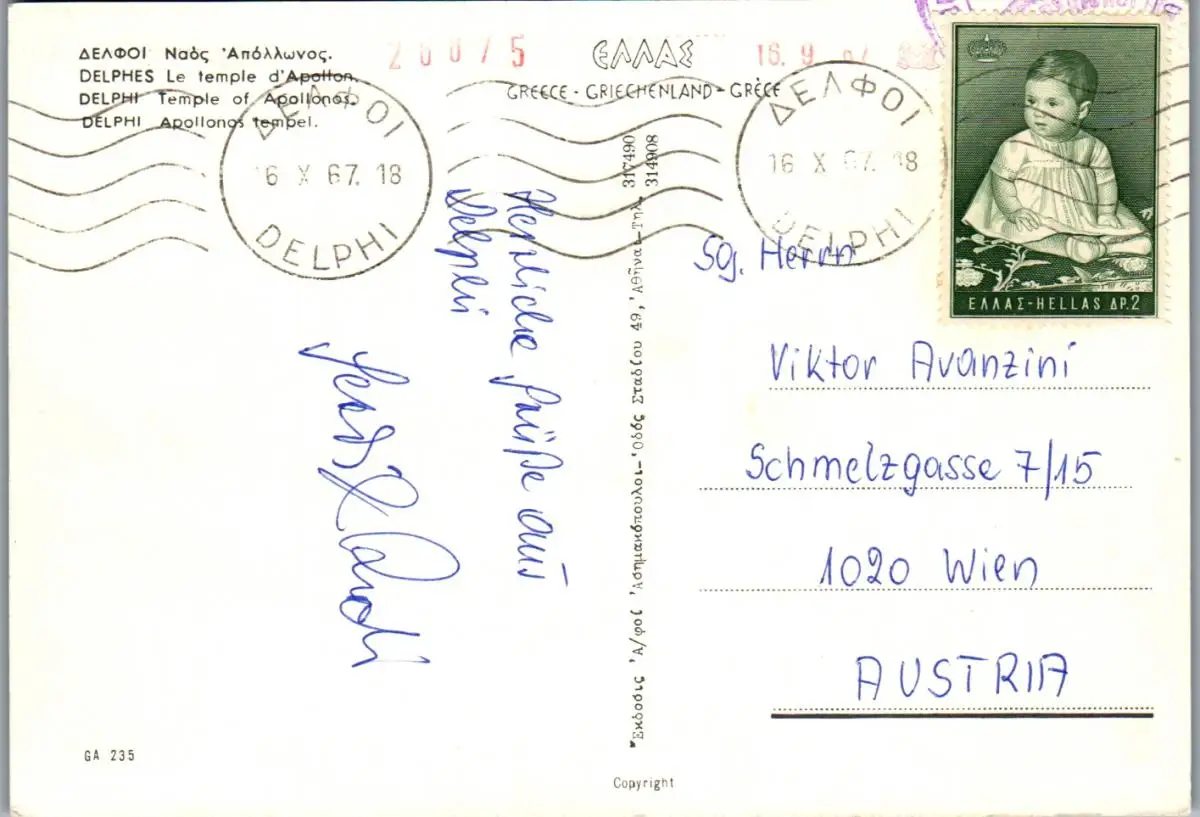 ΔΕΛΦΟΙ Ναὸς Ἀπόλλωνος.
DELPHES Le temple d'Apollon.
DELPHI Temple of Apollonos.
DELPHI Apollonos tempel.
20075
ΕΛΛΑΣ
GREECE - GRIECHENLAND - GRÈCE
16. 9
ΔΕΛΦΟΙ
16 X 67. 18
DELPHI
ΔΕΛΦΟΙ
16 X 67. 18
DELPHI
ΕΛΛΑΣ-HELLAS ΔΡ.2
Herzliche Grüße aus
Delphi
Ἐκδοσις Ἀ/φοὶ Ἀσημακόπουλοι-Ὁδὸς Σταδίου 49, Ἀθῆναι-Τηλ. 317490
314908
Sg. Herrn
Viktor Avanzini
Schmelzgasse 7/15
1020 Wien
AUSTRIA
GA 235
Copyright